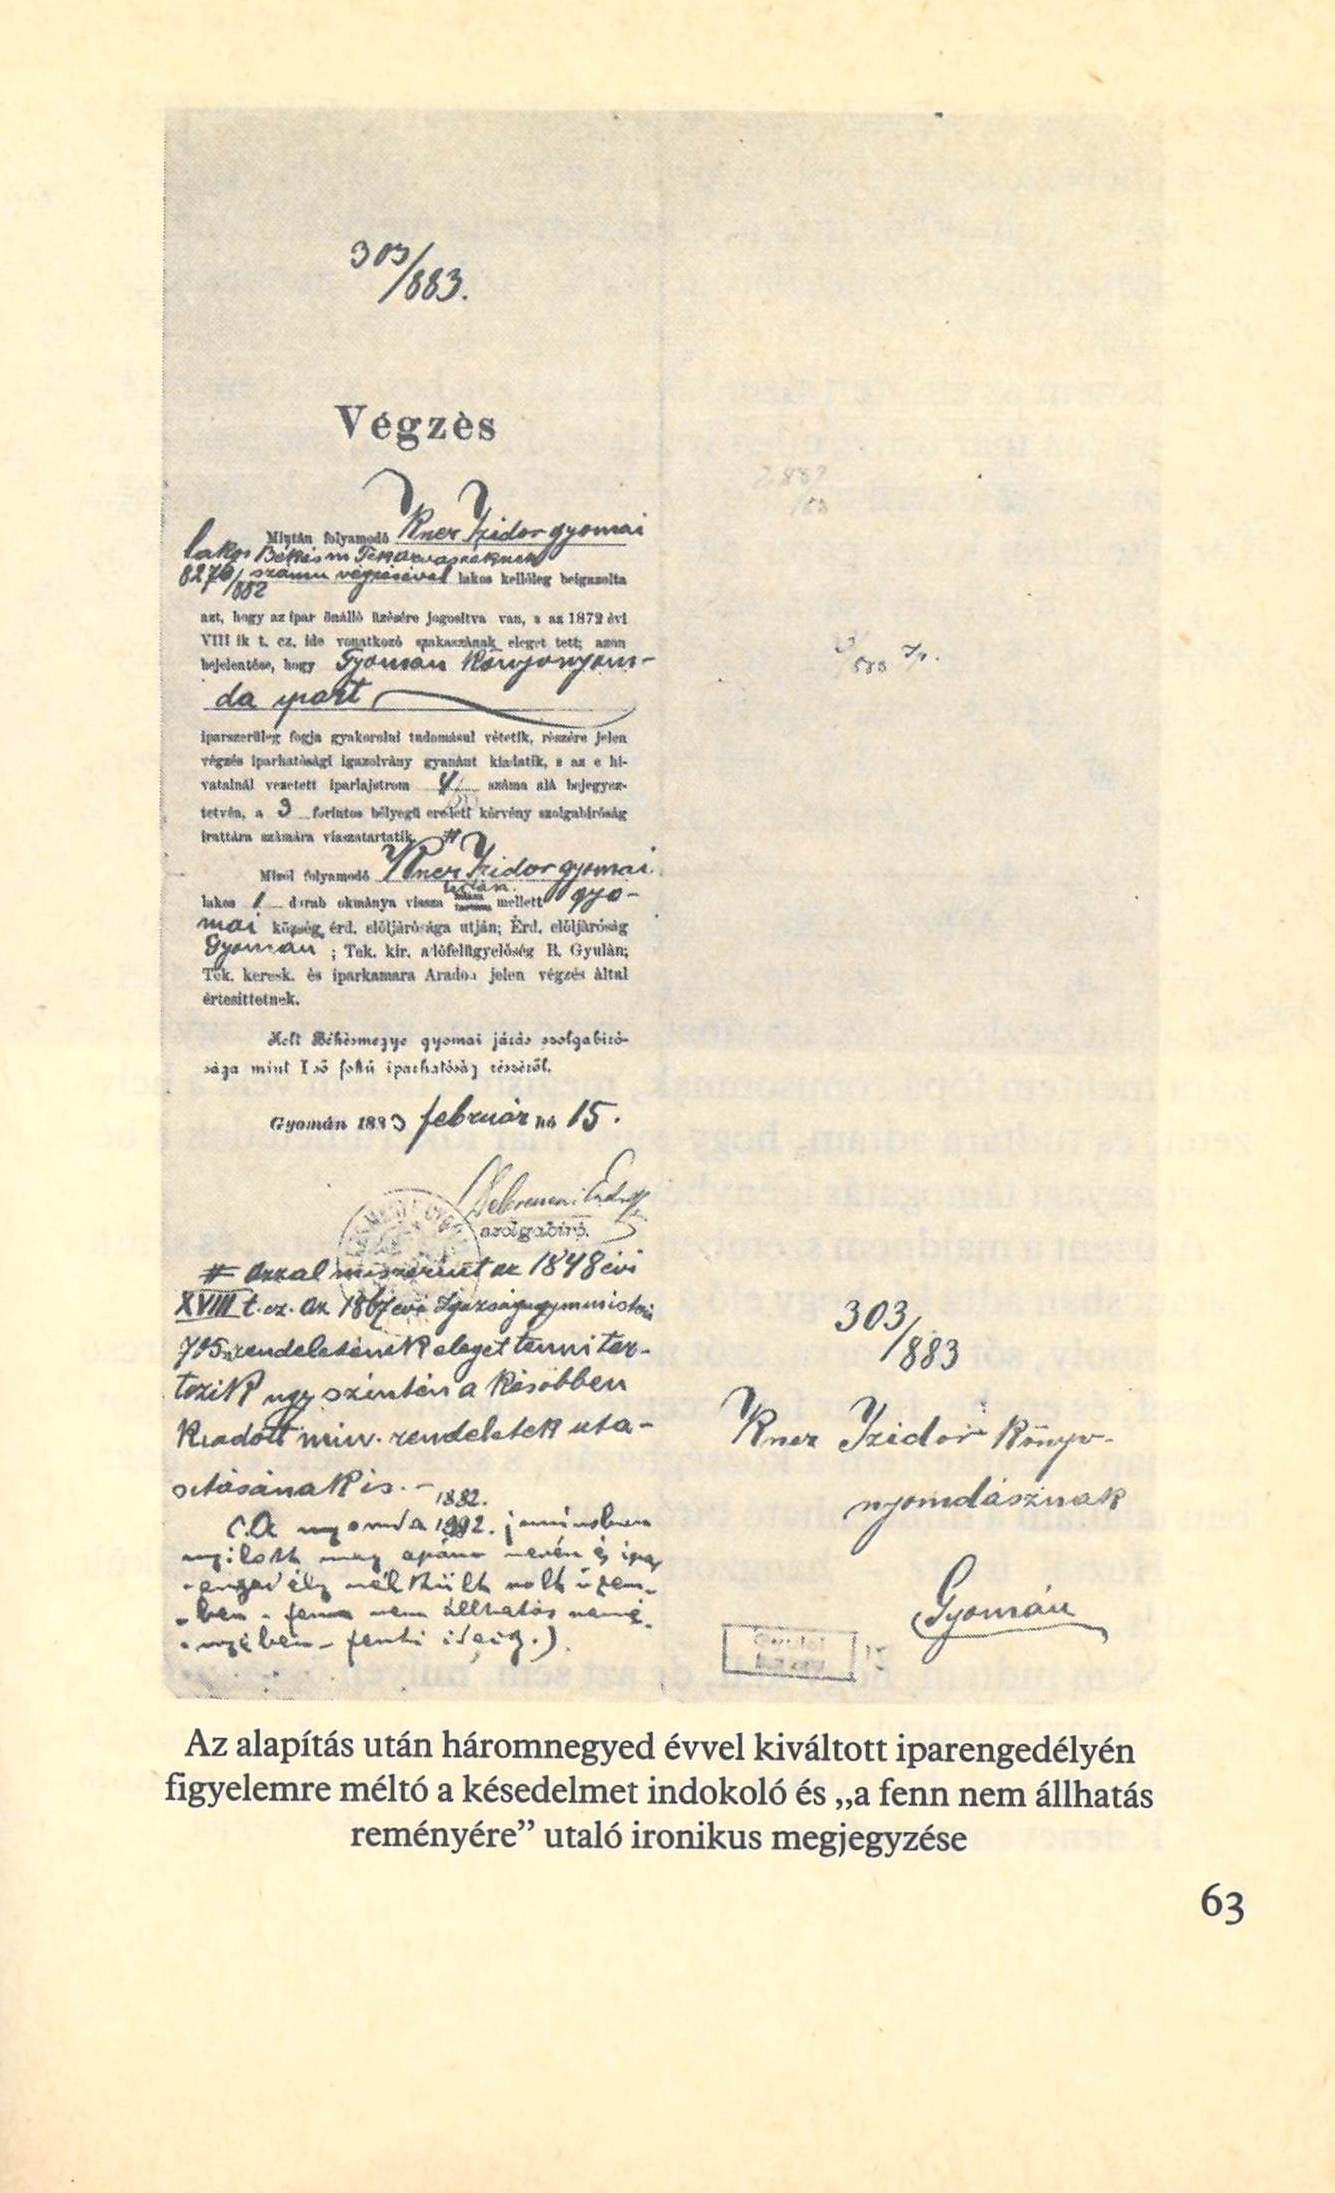 303/883.
Végzès
Miután folyamodó Kner Izidor gyomai
lakos Békésm Tek árvaszékének
8270/882 számu végzésével lakos kellőleg beigazolta
azt, hogy az ipar önálló űzésére jogosítva van, s az 1872 évi
VIII ik t. cz. ide vonatkozó szakaszának eleget tett; azon
bejelentése, hogy Gyomán Könyvnyom-
da ipart
iparszerüleg fogja gyakorolni tudomásul vétetik, részére jelen
végzés iparhatósági igazolvány gyanánt kiadatik, s az e hi-
vatalnál vezetett iparlajstrom 4 száma alá bejegyez-
tetvén, a 3 forintos bélyegü eredeti kérvény szolgabiróság
irattára számára visszatartatik. #
Miről folyamodó Kner Izidor gyomai
lakos 1 darab okmánya vissza mellett gyo-
mai község érd. elöljárósága utján; Érd. elöljáróság
Gyomán ; Tek. kir. adófelügyelőség B. Gyulán;
Tek. keresk. és iparkamara Aradon jelen végzés által
értesittetnek.
Kelt Békésmegye gyomai járás szolgabiró-
sága mint I ső fokú iparhatóság részéről.
Gyomán 1883 február hó 15.
szolgabiró.
# azzal miszerint az 1848 évi
XVIII t. cz. az 1867 évi Igazságügyministeri
rendeletének eleget tenni tar-
tozik ugy szintén a később
kiadott min. rendeletek uta-
sitásának is. –
1882.
(A nyomda 1882. juniusban
nyilott meg apám nevén és ipar-
engedély nélkült volt üzem-
ben a fenn nem állhatás remé-
nyében – fenti ideig.)
303/883
Kner Izidor Könyv-
nyomdásznak
Gyomán
Az alapítás után háromnegyed évvel kiváltott iparengedélyén
figyelemre méltó a késedelmet indokoló és „a fenn nem állhatás
reményére” utaló ironikus megjegyzése
63